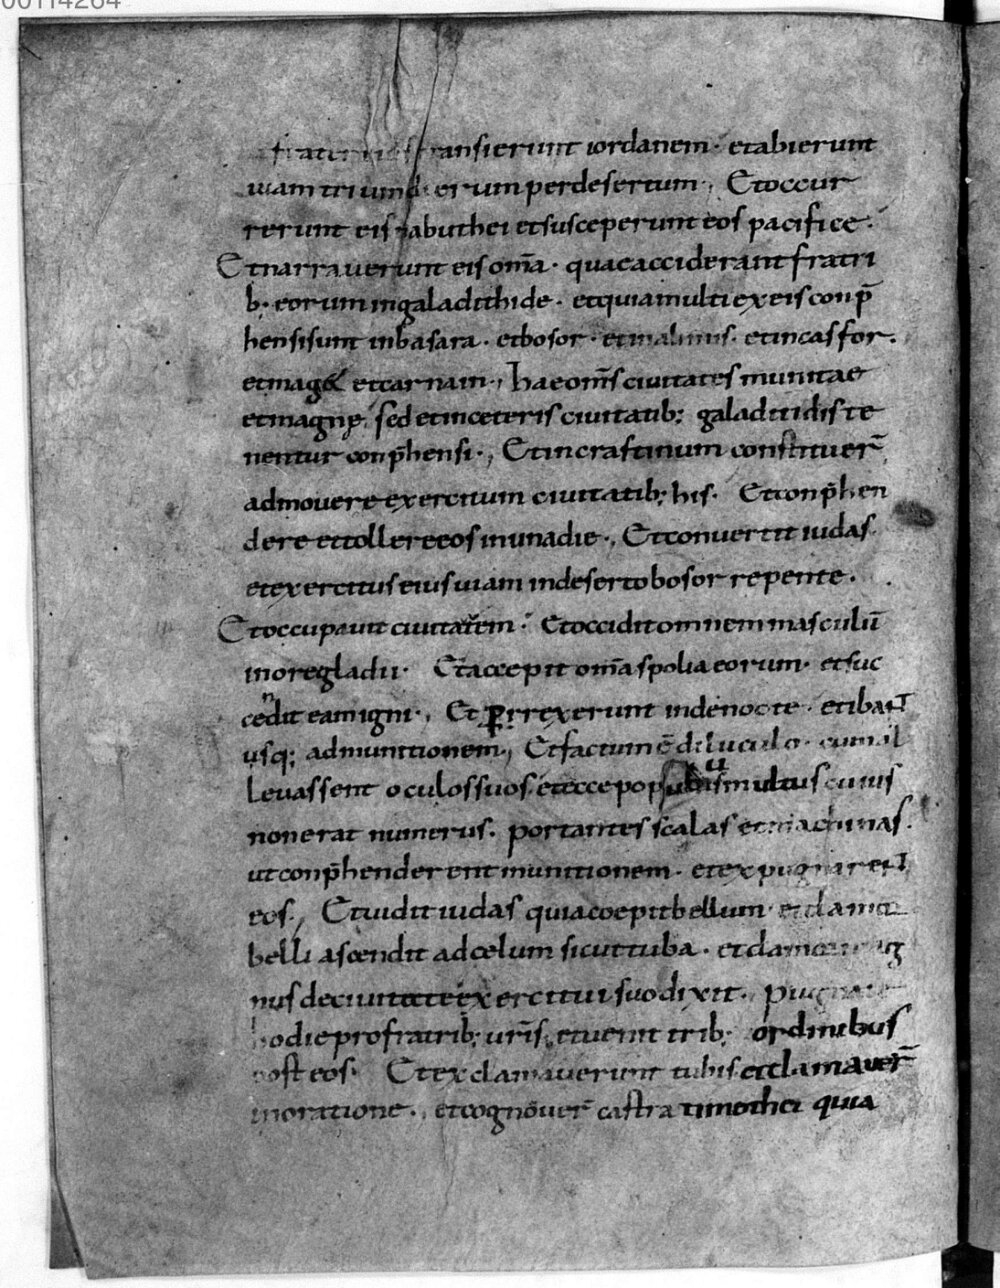 00114264
frater eius transierunt iordanem · et abierunt
uiam trium dierum per desertum ·, Et occur
rerunt eis nabuthei et susceperunt eos pacifice ·
Et narrauerunt eis om̄a · quae acciderant fratri
b; eorum in galadithide · et quia multi ex eis conp̄
hensi sunt in basara · et bosor · et in alimis · et in casfor ·
et mag& et carnain ·, hae om̄s ciuitates munitae
et magnę, sed et in ceteris ciuitatib; galaditidis te
nentur conp̄hensi ·, Et in crastinum constituer̄
admouere exercitum ciuitatib; his · Et conp̄hen
dere et tollere eos in una die ·, Et conuertit iudas
et exercitus eius uiam in deserto bosor repente ·
Et occupauit ciuitatem · Et occidit omnem masculū
in ore gladii · Et accepit om̄a spolia eorum · et suc
cendit eam igni ·, Et perrexerunt inde nocte · et ibant
usq; ad munitionem ·, Et factum ē diluculo · cum al
leuassent oculos suos et ecce populus multus cuius
non erat numerus · portantes scalas et machinas ·
ut conp̄henderent munitionem · et expugnarent
eos ·, Et uidit iudas quia coepit bellum · et clamor
belli ascendit ad cęlum sicut tuba · et clamor mag
nus de ciuitate et exercitui suo dixit · Pugnate
hodie pro fratrib; ur̄is, et uenit trib; ordinibus
post eos · Et exclamauerunt tubis et clamauer̄
in oratione ·, et cognouer̄ castra timothei quia